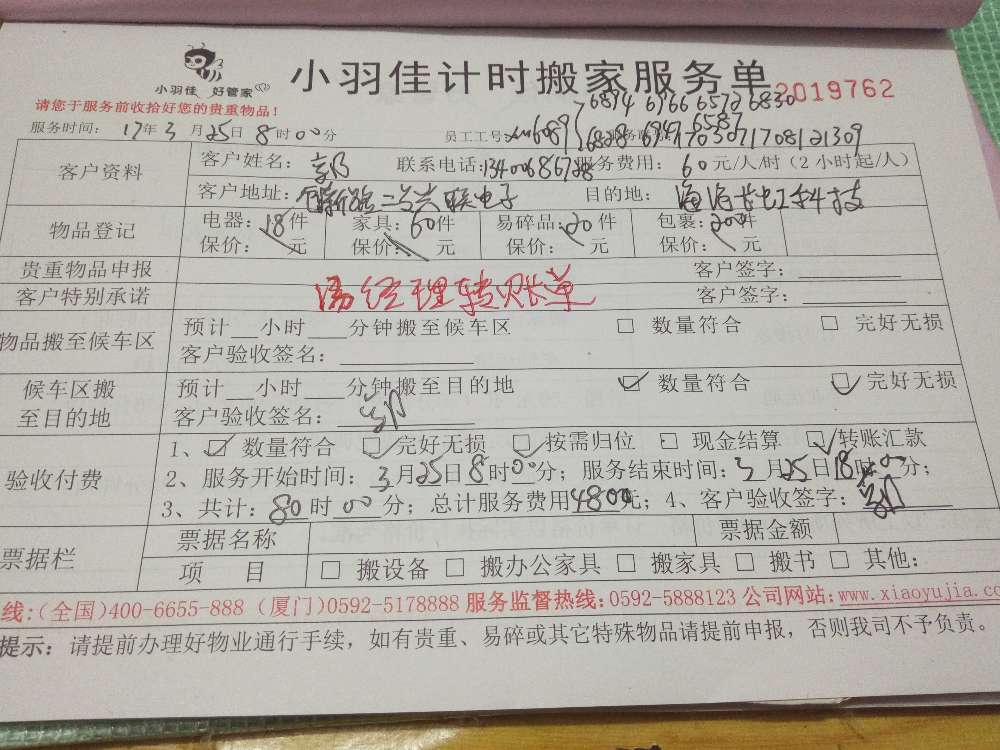 小羽佳 好管家
小羽佳计时搬家服务单
2019762
请您于服务前收拾好您的贵重物品!
6894 6966 6572 6830
服务时间: 17年3月25日8时00分 员工工号: 6089 6828 6947 6587
1703071708121309
客户资料 客户姓名: 联系电话:13400686728 服务费用: 60元/人/时(2小时起/人)
客户地址: 二号 联电子 目的地: 科技
物品登记 电器:18件 家具:60件 易碎品:20件 包裹:20件
保价: 元 保价: 元 保价: 元 保价: 元
贵重物品申报 客户签字:
客户特别承诺 客户签字:
汤经理转账单
物品搬至候车区 预计 小时 分钟搬至候车区 □ 数量符合 □ 完好无损
客户验收签名:
候车区搬至目的地 预计 小时 分钟搬至目的地 ☑ 数量符合 ☑ 完好无损
客户验收签名:
验收付费 1、☑ 数量符合 ☑ 完好无损 ☑ 按需归位 □ 现金结算 ☑ 转账汇款
2、服务开始时间: 3月25日8时00分; 服务结束时间: 3月25日18时00分;
3、共计: 80时00分; 总计服务费用4800元; 4、客户验收签字:
票据栏 票据名称 票据金额
项 目 □ 搬设备 □ 搬办公家具 □ 搬家具 □ 搬书 □ 其他:
线:(全国)400-6655-888 (厦门)0592-5178888 服务监督热线:0592-5888123 公司网站:www.xiaoyujia.co
提示: 请提前办理好物业通行手续, 如有贵重、易碎或其它特殊物品请提前申报, 否则我司不予负责。